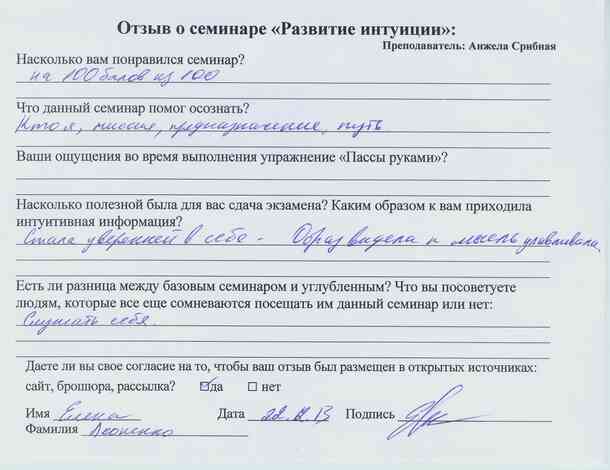 Отзыв о семинаре «Развитие интуиции»:
Преподаватель: Анжела Срибная
Насколько вам понравился семинар?
на 100 балов из 100
Что данный семинар помог осознать?
Кто я, миссия, предназначение, путь
Ваши ощущения во время выполнения упражнение «Пассы руками»?
Насколько полезной была для вас сдача экзамена? Каким образом к вам приходила
интуитивная информация?
Стала уверенней в себе - Образ видела и мысль улавливала
Есть ли разница между базовым семинаром и углубленным? Что вы посоветуете
людям, которые все еще сомневаются посещать им данный семинар или нет:
Слушать себя.
Даете ли вы свое согласие на то, чтобы ваш отзыв был размещен в открытых источниках:
сайт, брошюра, рассылка? да нет
Имя Елена Дата Подпись
Фамилия